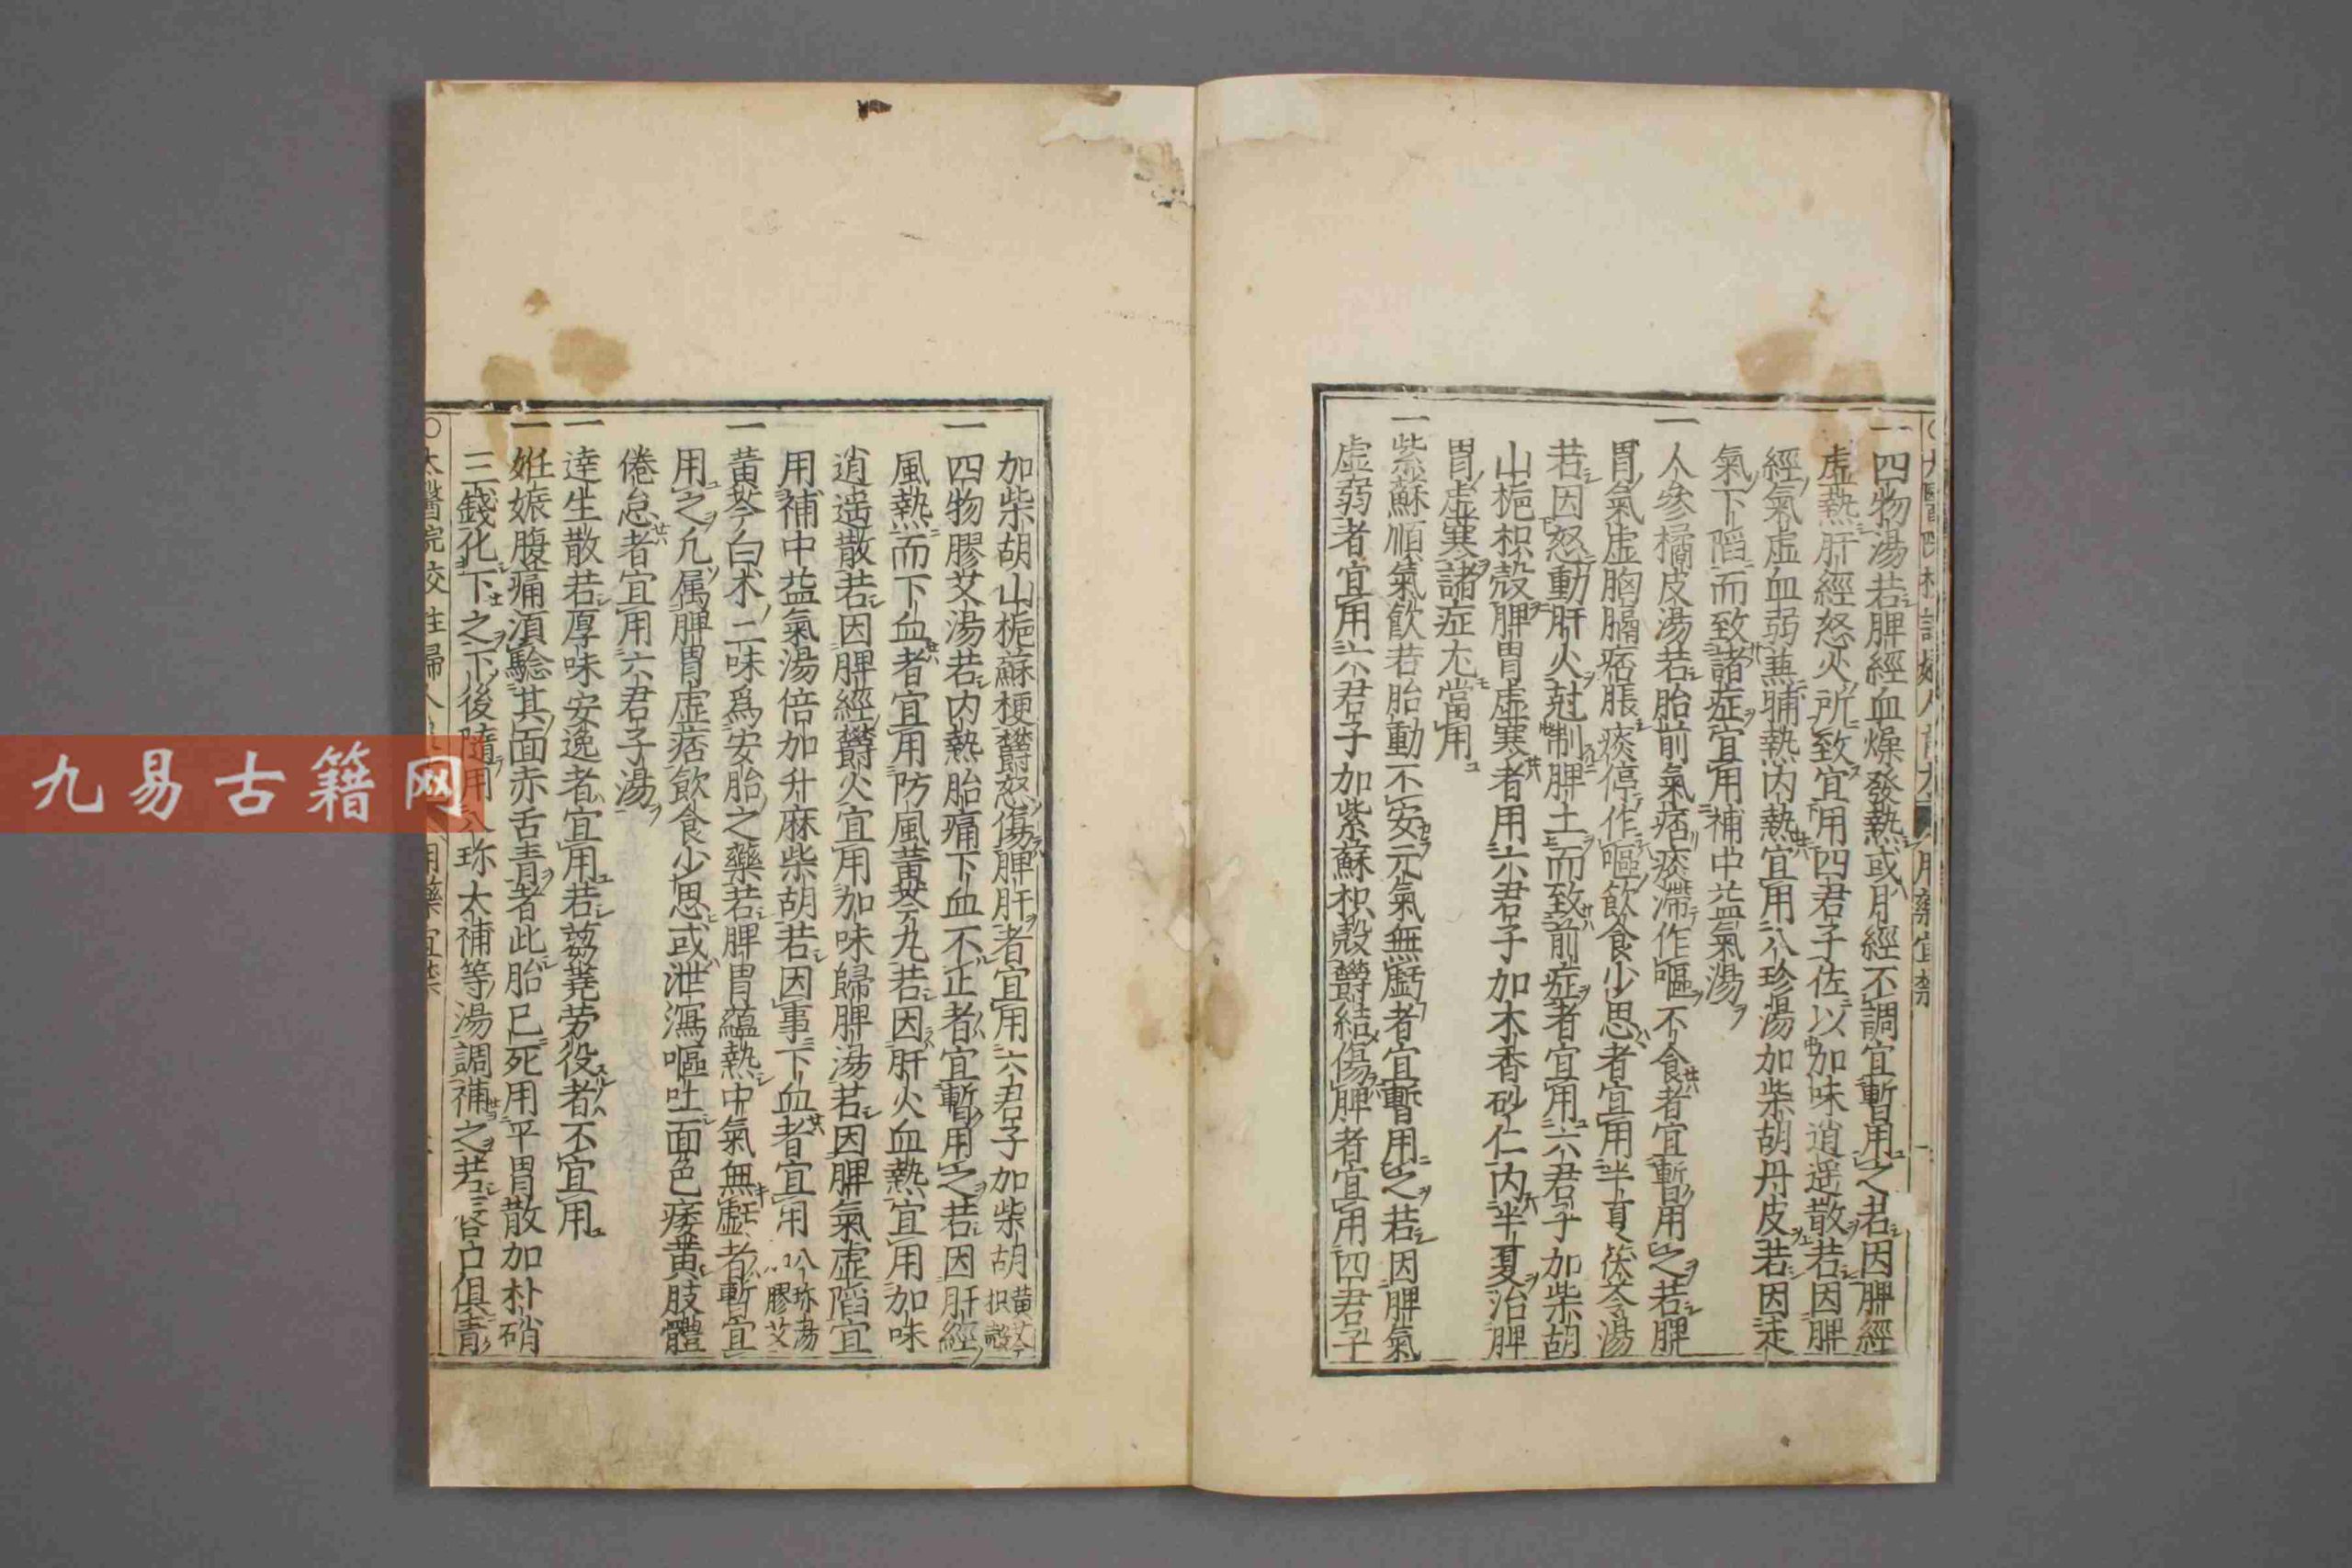 一四物湯若脾經血燥發熱或月經不調宜暫用之若因脾經
虛熱肝經怒火所致宜用四君子佐以加味逍遥散若因脾
經氣虛血弱兼晡熱内熱宜用八珍湯加柴胡丹皮若因走
氣下陷而致諸症宜用補中益氣湯
一人參橘皮湯若胎前氣痞痰滯作嘔不食者宜暫用之若脾
胃氣虛胸膈痞脹痰停作嘔飲食少思者宜用半夏茯苓湯
若因怒動肝火尅制脾土而致前症者宜用六君子加柴胡
山梔枳殼脾胃虛寒者用六君子加木香砂仁内半夏治脾
胃虛寒諸症尢當用
一紫蘇順氣飲若胎動不安元氣無虧者宜暫用之若因脾氣
虛弱者宜用六君子加紫蘇枳殼欝結傷脾者宜用四君子
加柴胡山梔蘇梗欝怒傷脾肝者宜用六君子加柴胡黄芩枳殼
一四物膠艾湯若内熱胎痛下血不正者宜暫用之若因肝經
風熱而下血者宜用防風黄芩丸若因肝火血熱宜用加味
逍遥散若因脾經欝火宜用加味歸脾湯若因脾氣虛陷宜
用補中益氣湯倍加升麻柴胡若因事下血者宜用八珍湯膠艾
一黄芩白术二味爲安胎之藥若脾胃蘊熱中氣無虧者暫宜
用之凢属脾胃虛痞飲食少思或泄瀉嘔吐面色痿黄肢體
倦怠者宜用六君子湯
一達生散若厚味安逸者宜用若蒭蕘劳役者不宜用
一姙娠腹痛湏驗其面赤舌青者此胎已死用平胃散加朴硝
三錢化下之下後隨用八珍大補等湯調補之若唇口俱青
九易古籍网